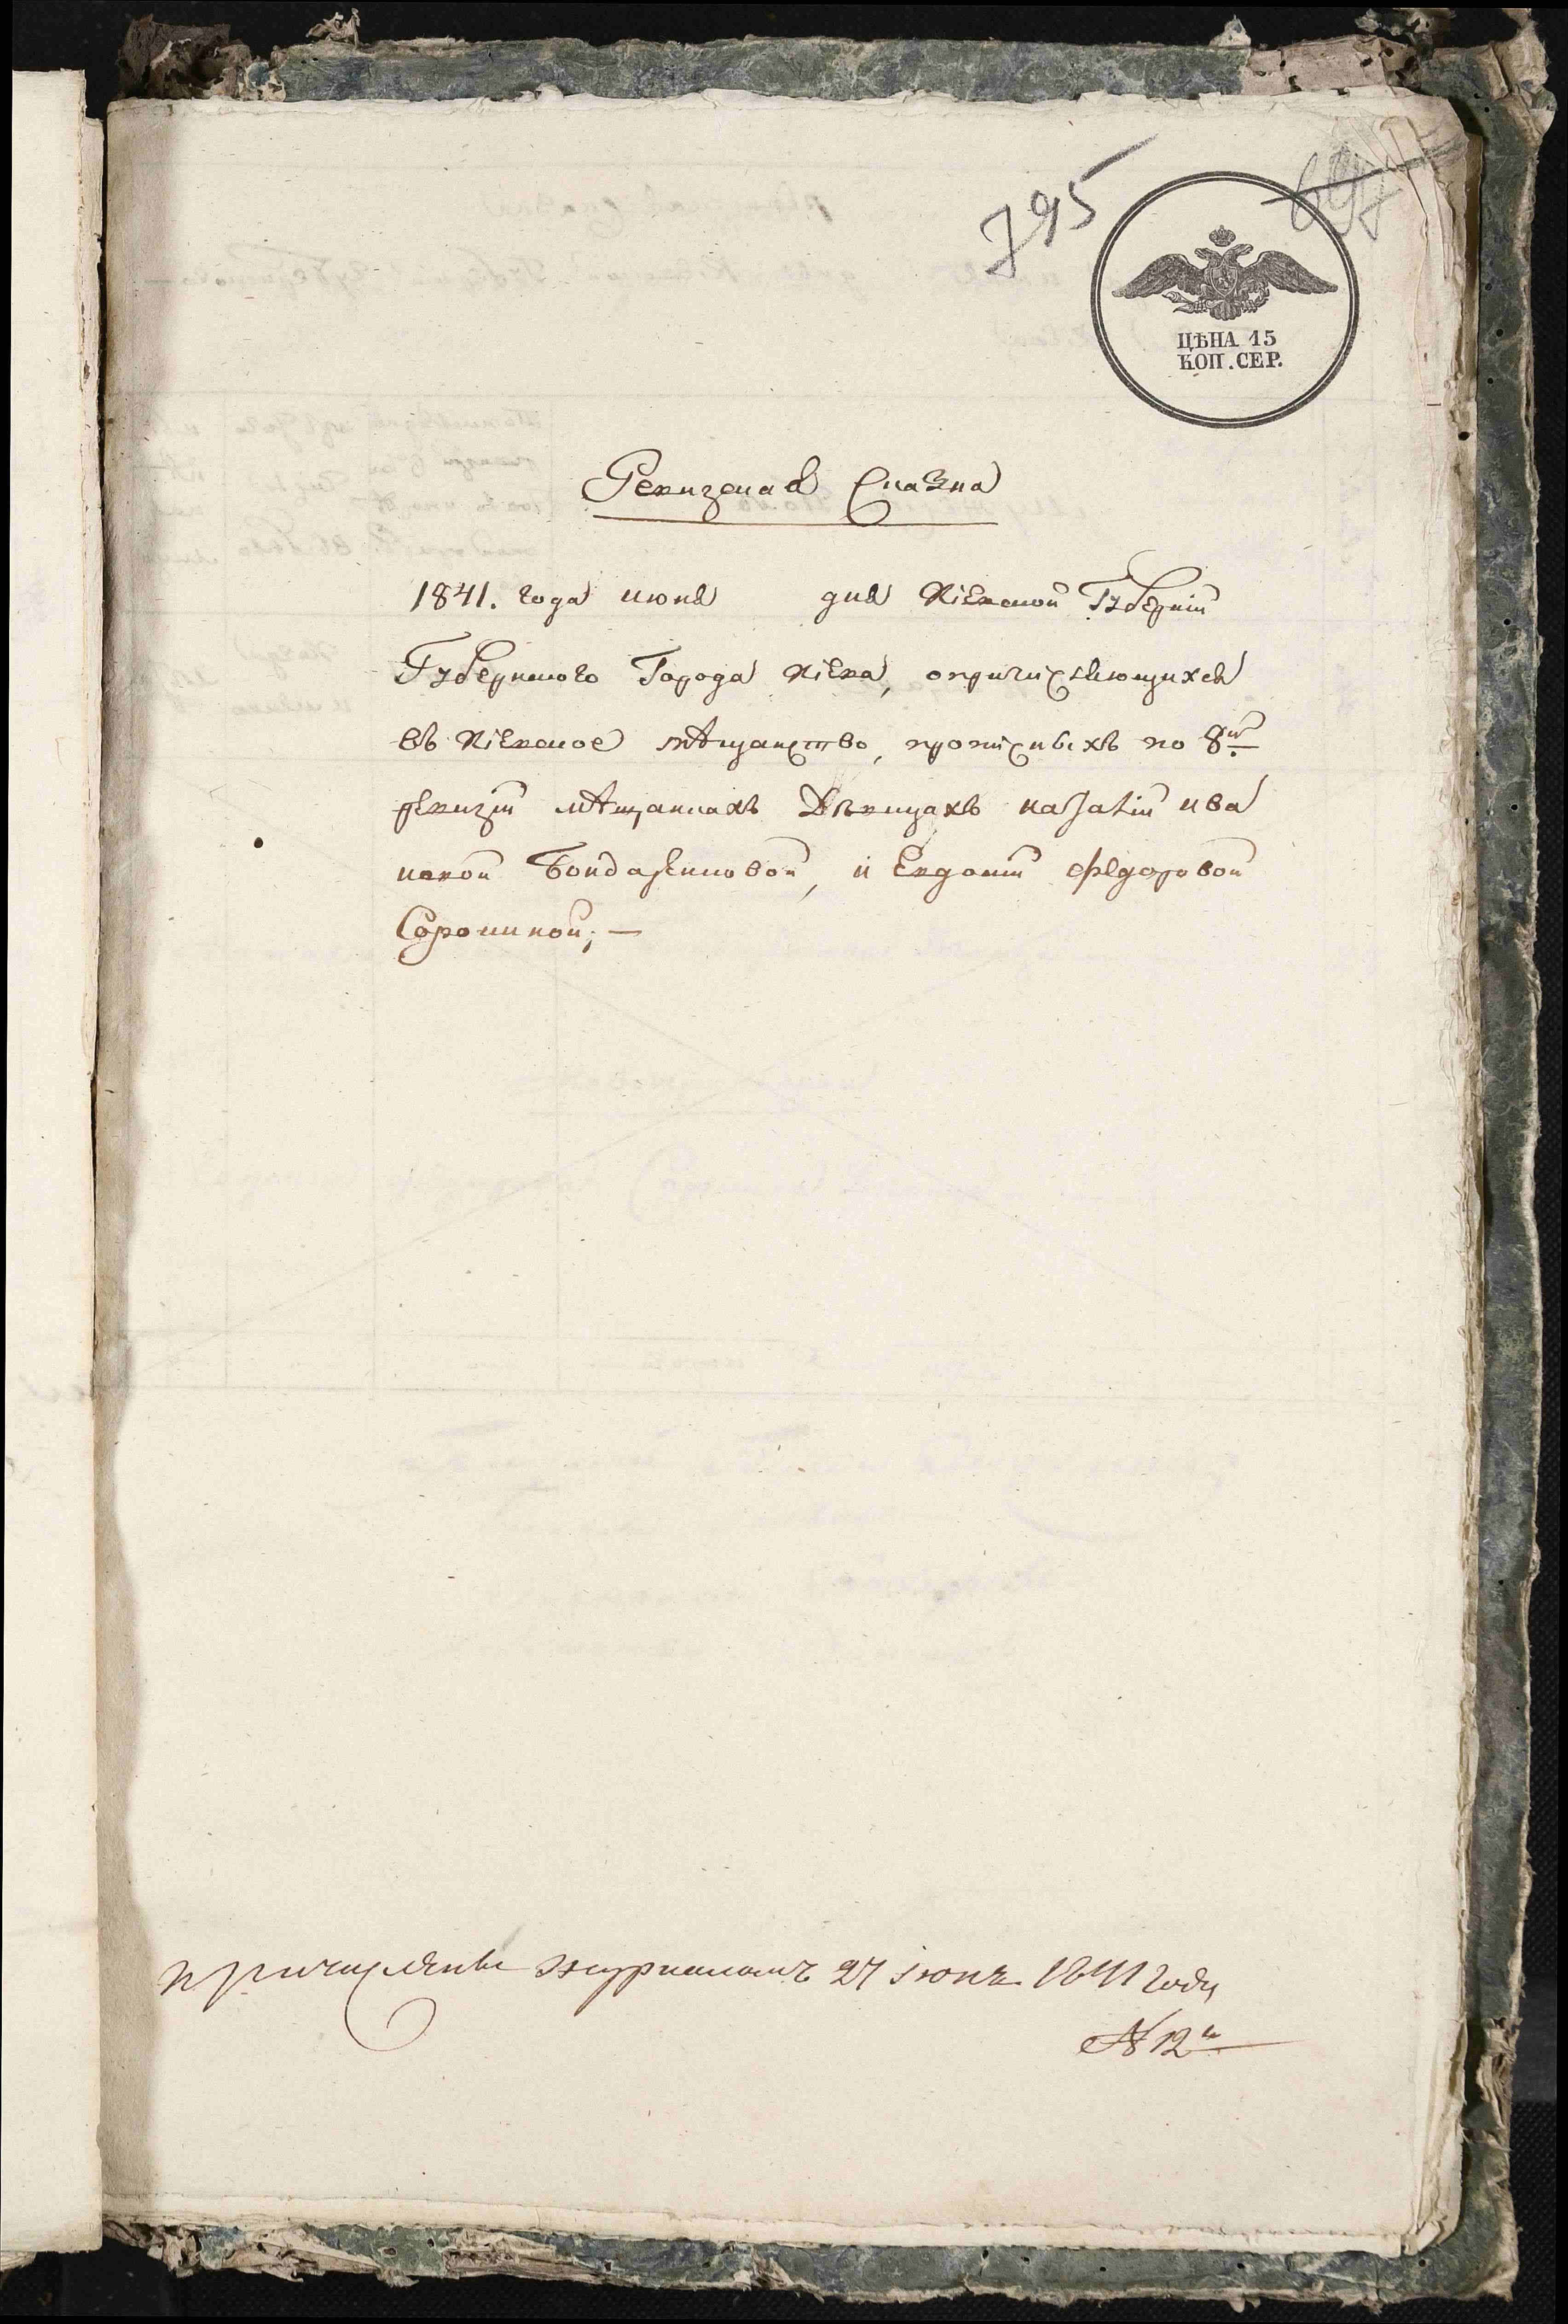 795
ЦѢНА 15
КОП. СЕР.
Ревизская Сказка
1841. года июня дня Кіевской Губерніи
Губернскаго Города Кіева, опричисляющихся
въ Кіевское мѣщанство, прописныхъ по 8й
ревизіи мѣщанкахъ Дѣвицахъ Наталіи Ива
новой Бондаренковой, и Евдокіи Федоровой
Сорокиной; —
Причислены журналомъ 27 Іюня 1841 года
№ 12й